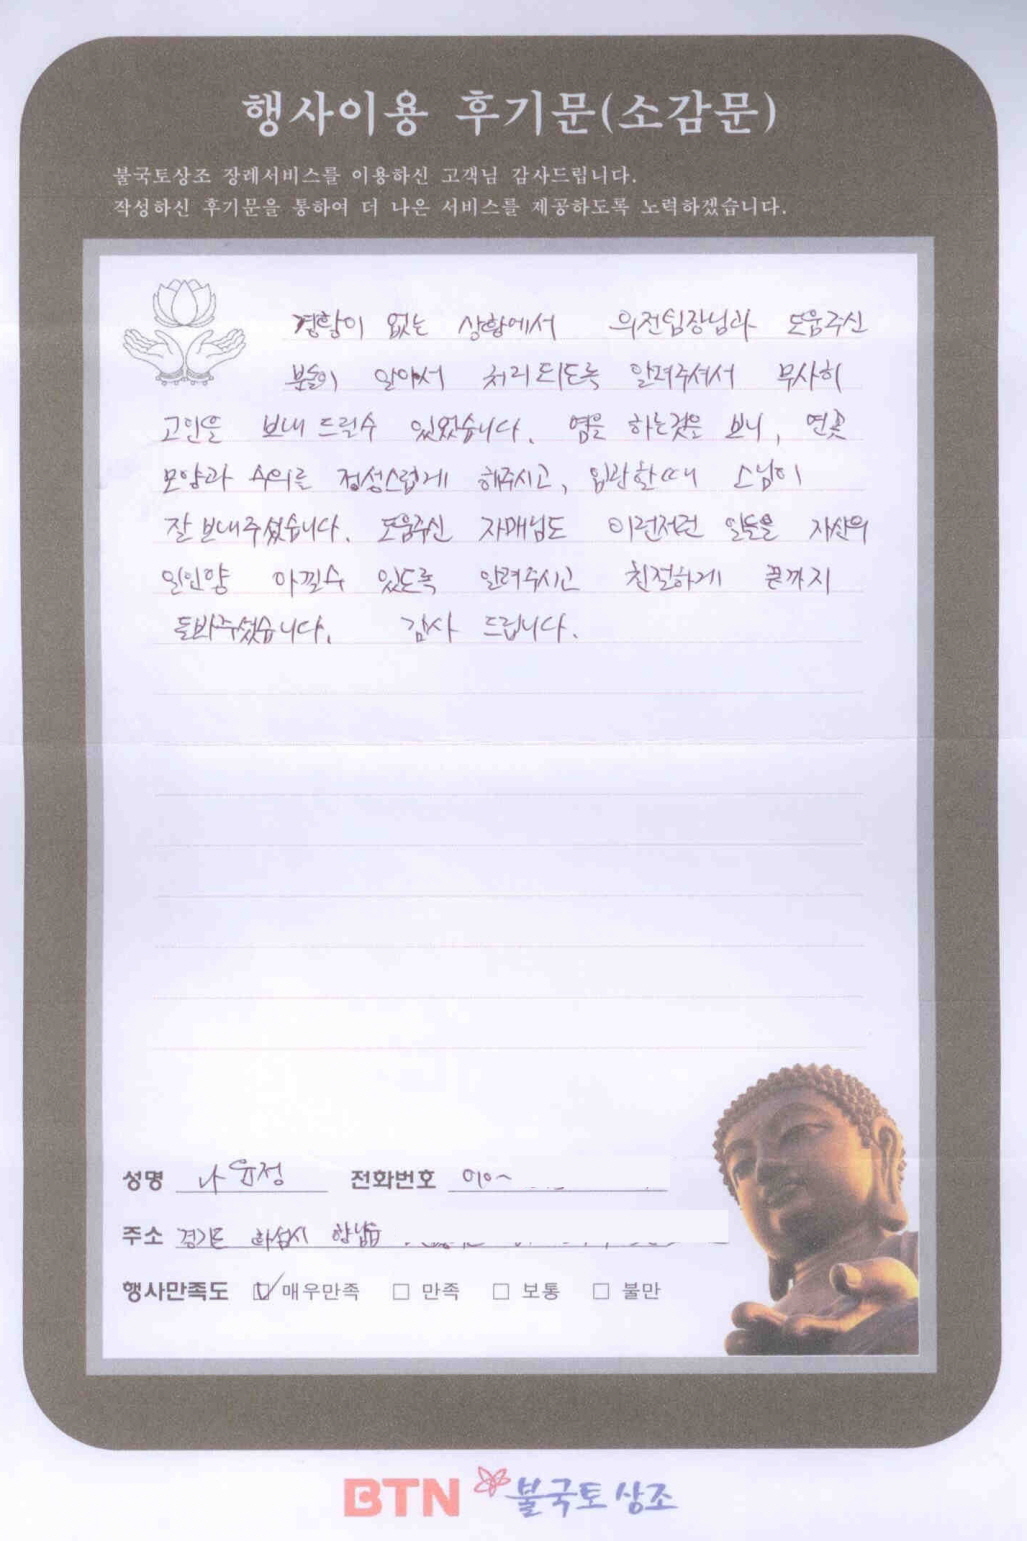 행사이용 후기문(소감문)
불국토상조 장례서비스를 이용하신 고객님 감사드립니다.
작성하신 후기문을 통하여 더 나은 서비스를 제공하도록 노력하겠습니다.
경황이 없는 상황에서 의전팀장님과 도움주신
분들이 알아서 처리되도록 알려주셔서 무사히
고인을 보내 드릴수 있었습니다. 염을 하는것을 보니, 연꽃
모양과 수의를 정성스럽게 해주시고, 입관할때 스님이
잘 보내주셨습니다. 도움주신 자매님도 이런저런 일들을 자신의
일인양 아낄수 있도록 알려주시고 친절하게 끝까지
돌봐주셨습니다. 감사 드립니다.
성명 나유정 전화번호 010~
주소 경기도 화성시 향남읍
행사만족도 ☑ 매우만족 □ 만족 □ 보통 □ 불만
BTN 불국토 상조